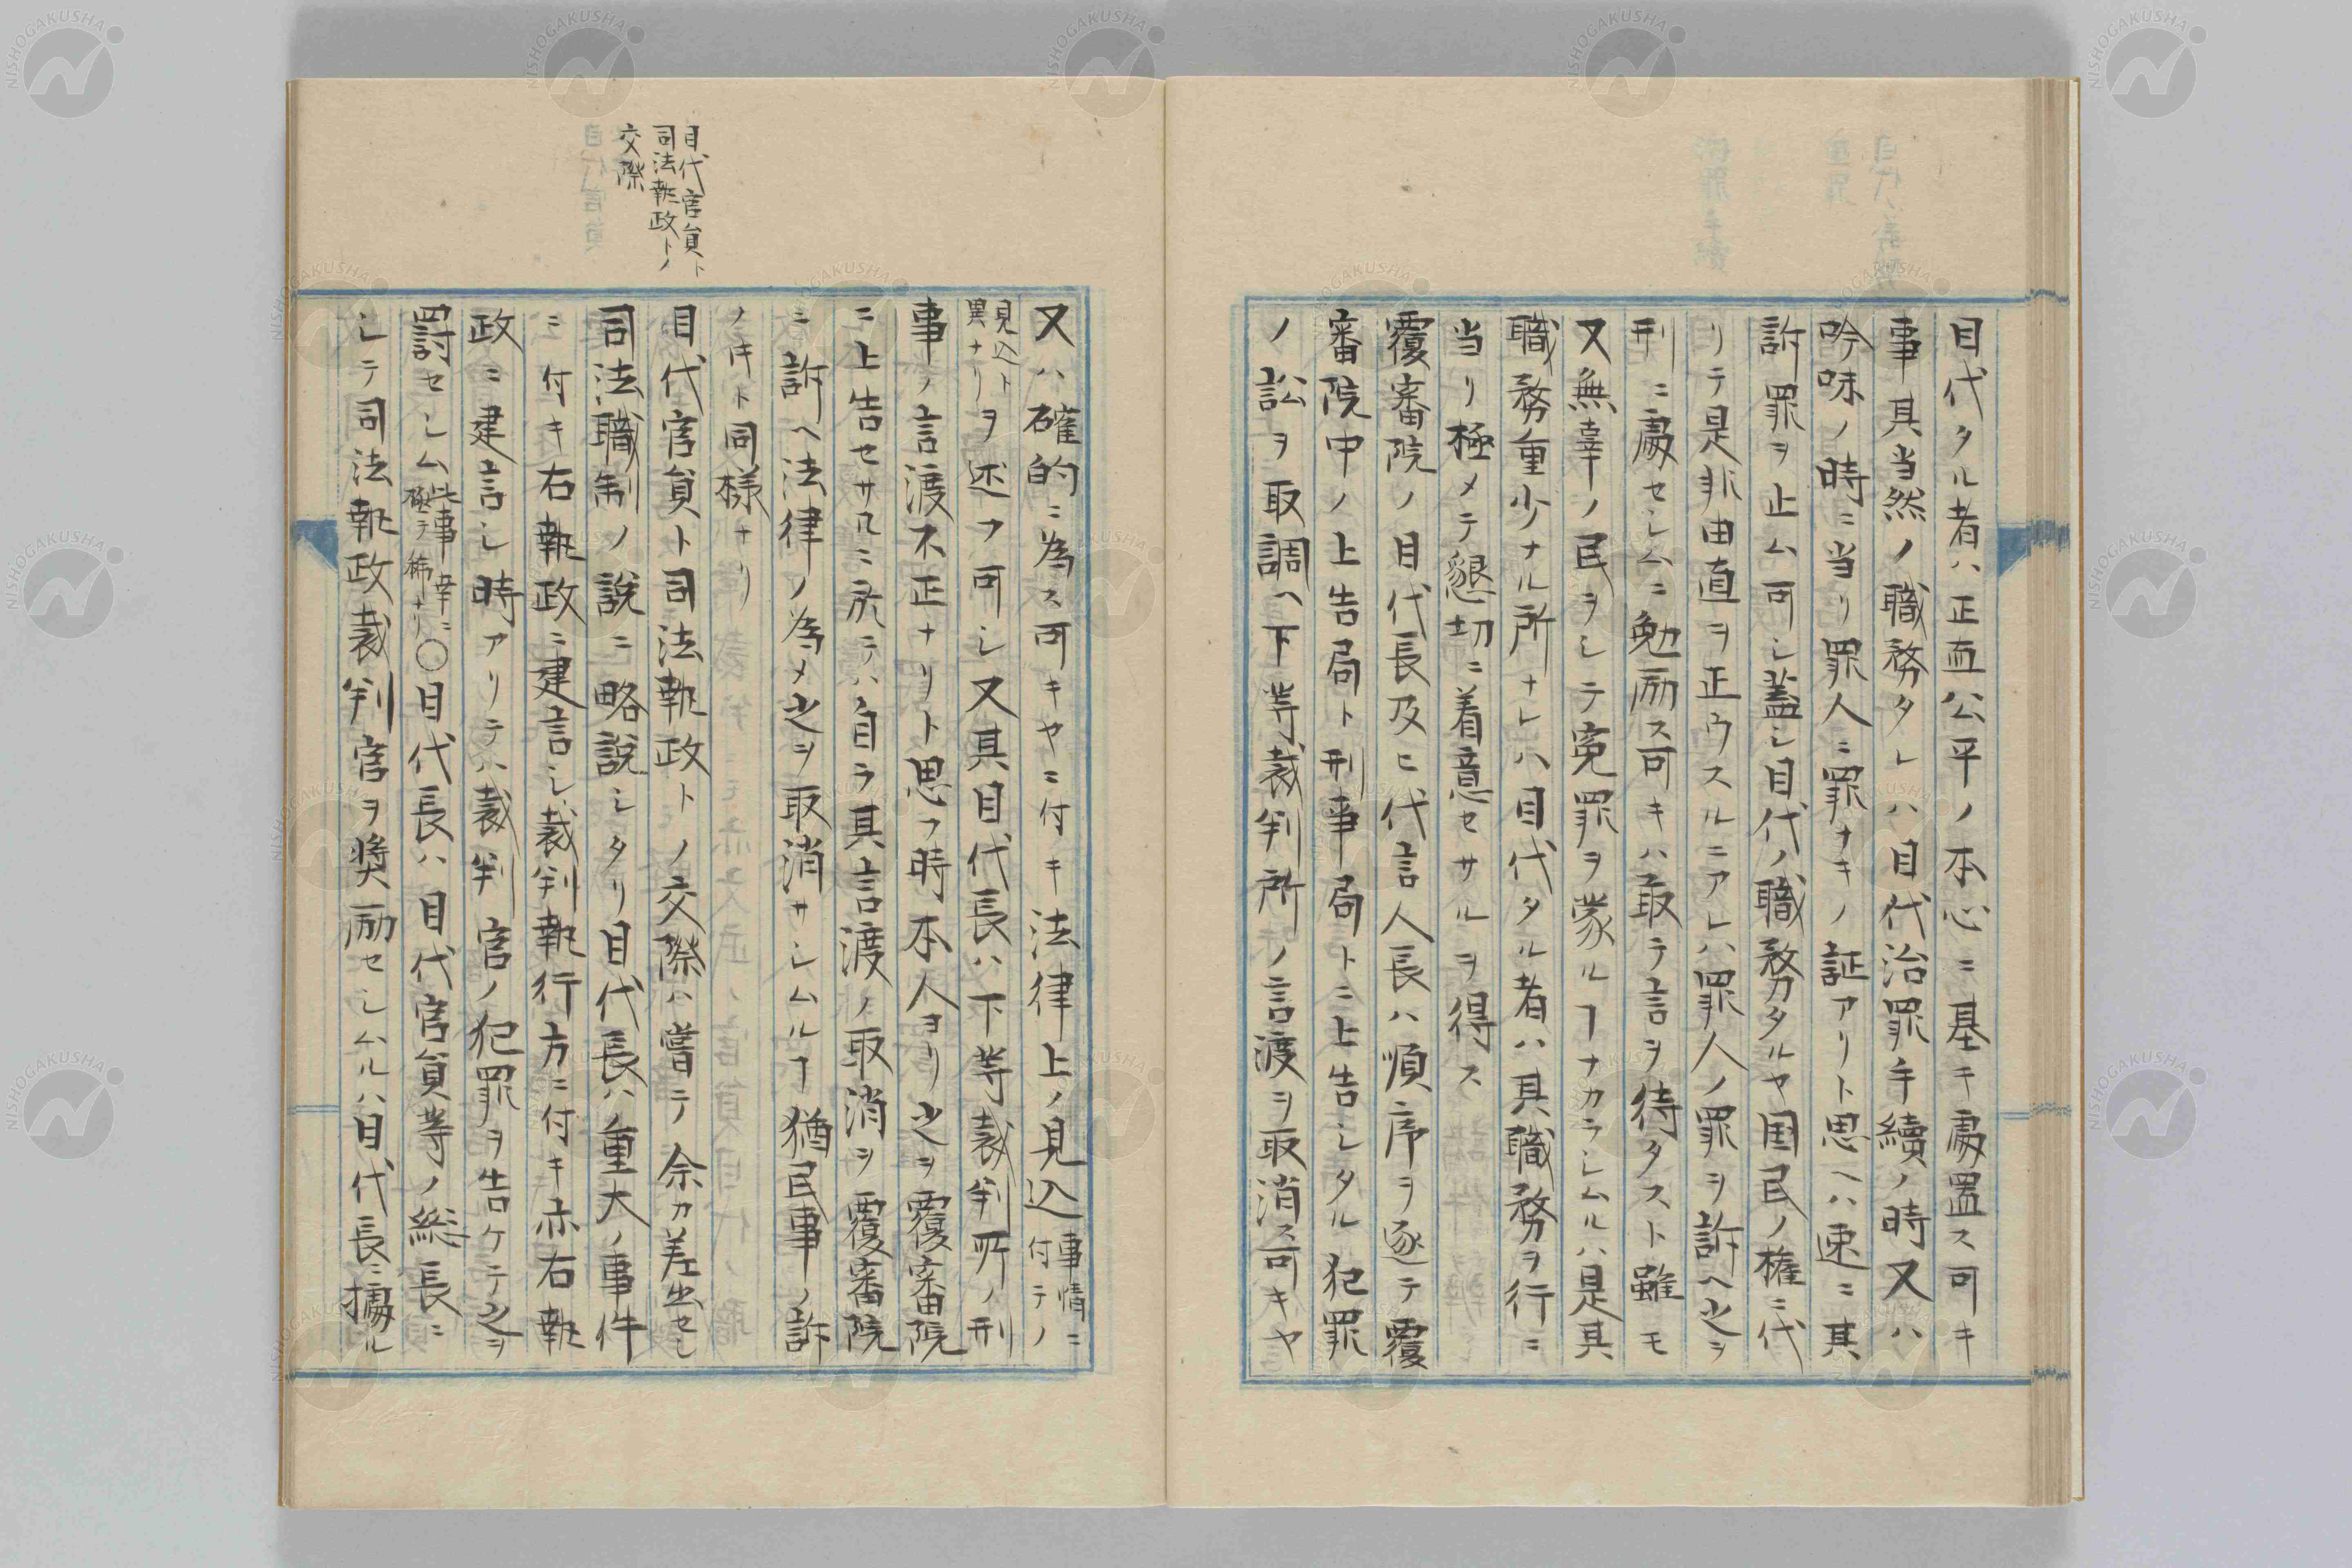 目代タル者ハ正直公平ノ本心ニ基キ處置ス可キ
事其当然ノ職務タレハ目代治罪手續ノ時又ハ
吟味ノ時ニ当リ罪人ニ罪ナキノ証アリト思ヘハ速ニ其
訴罪ヲ止ム可シ蓋シ目代ノ職務タルヤ国民ノ権ニ代
リテ是非曲直ヲ正ウスルニアレハ罪人ノ罪ヲ訴ヘ之ヲ
刑ニ處セシムニ勉励ス可キハ敢テ言ヲ待タスト雖モ
又無辜ノ民ヲシテ寃罪ヲ蒙ルヿナカラシムルハ是其
職務重少ナル所ナレハ目代タル者ハ其職務ヲ行ニ
当リ極メテ懇切ニ着意セサルヲ得ス
覆審院ノ目代長及ヒ代言人長ハ順序ヲ逐テ覆
審院中ノ上告局ト刑事局トニ上告シタル犯罪
ノ訟ヲ取調ヘ下等裁判所ノ言渡ヲ取消ス可キヤ
又ハ確的ニ為ス可キヤニ付キ法律上ノ見込事情ニ付テノ
見込ト異ナリヲ述フ可シ又其目代長ハ下等裁判所ノ刑
事ノ言渡不正ナリト思フ時本人ヨリ之ヲ覆審院
ニ上告セサルニ於テハ自ラ其言渡ノ取消ヲ覆審院
ニ訴ヘ法律ノ為メ之ヲ取消サシムルヿ猶民事ノ訴
ノ件ト同様ナリ
目代官員ト
司法執政トノ
交際
目代官員ト司法執政トノ交際ハ嘗テ余カ差出セシ
司法職制ノ説ニ略説シタリ目代長ハ重大ノ事件
ニ付キ右執政ニ建言シ裁判執行方ニ付キ亦右執
政ニ建言シ時アリテハ裁判官ノ犯罪ヲ告ケテ之ヲ
罰セシム此事幸ニ極テ稀ナリ〇目代長ハ目代官員等ノ総長ニ
シテ司法執政裁判官ヲ奨励セシムルハ目代長ニ據ル